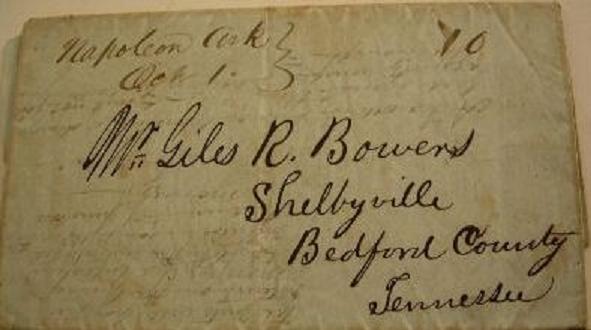 Napoleon Ark
Oct 1.
10
Mr. Giles R. Bowers
Shelbyville
Bedford County
Tennessee